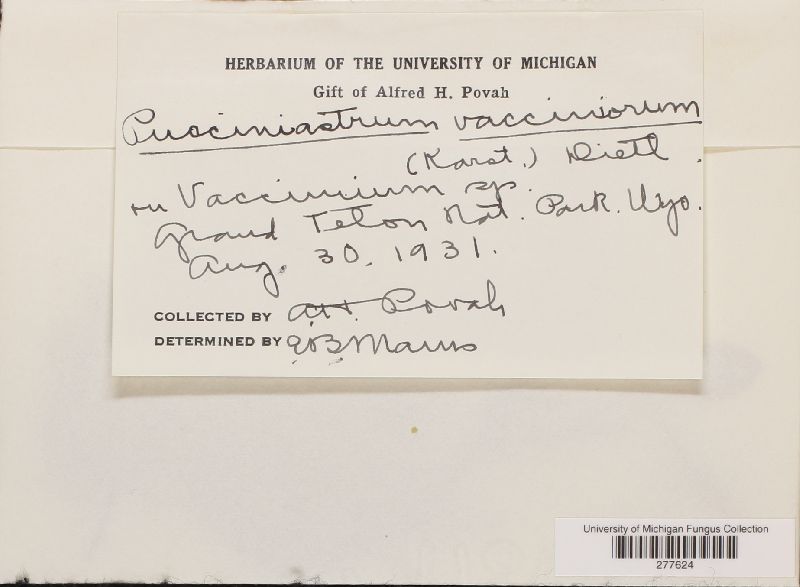 HERBARIUM OF THE UNIVERSITY OF MICHIGAN
Gift of Alfred H. Povah
Pucciniastrum vacciniorum
(Karst.) Dietl.
on Vaccinium sp.
Grand Teton Nat. Park. Wyo.
Aug. 30. 1931.
COLLECTED BY AH. Povah
DETERMINED BY EBMains
University of Michigan Fungus Collection
277624